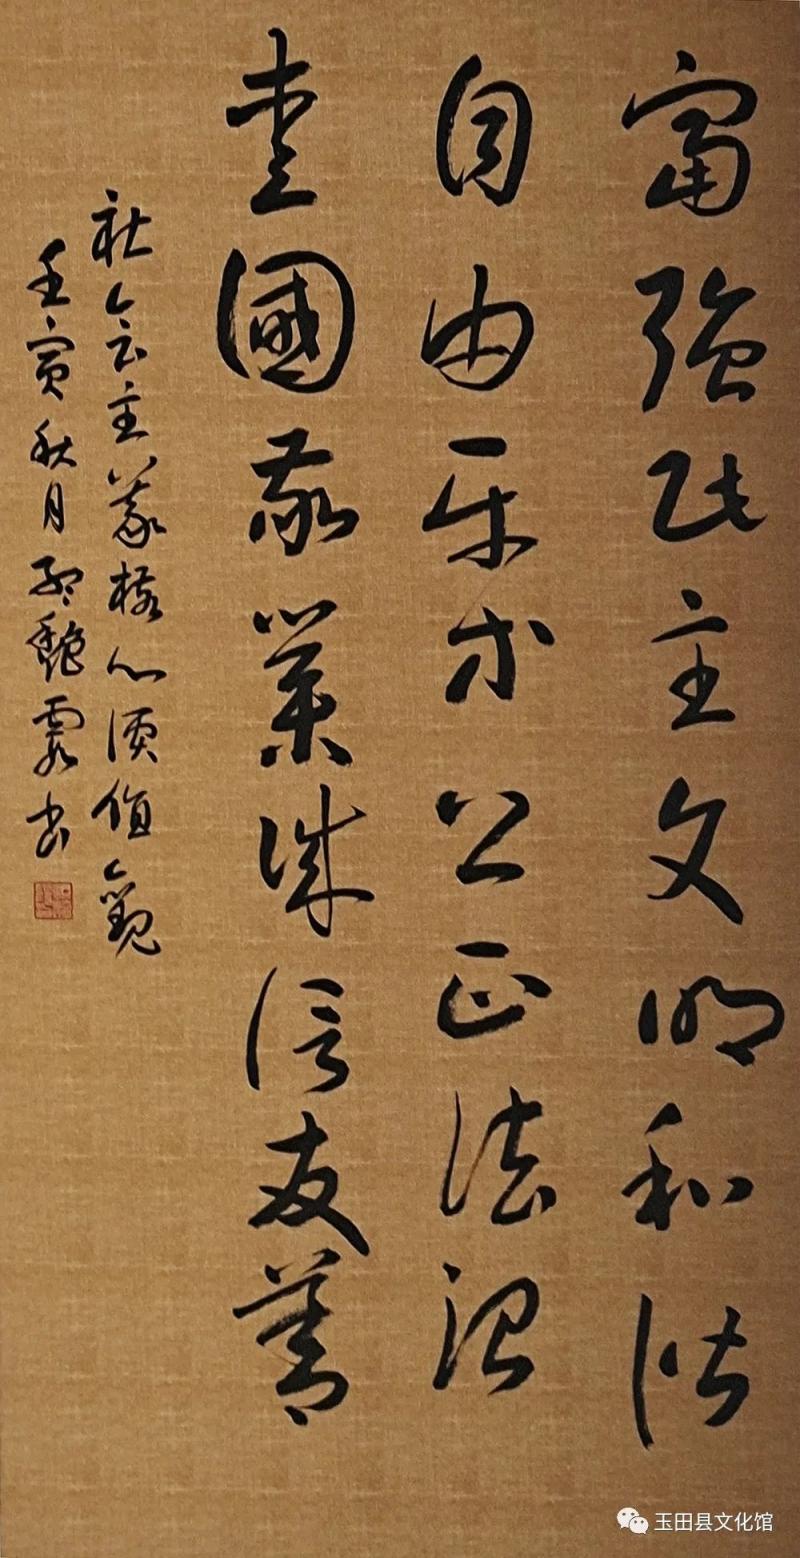 富強民主文明和谐
自由平等公正法治
爱國敬業诚信友善
社会主義核心價值觀
壬寅秋月艷霞书
玉田县文化馆